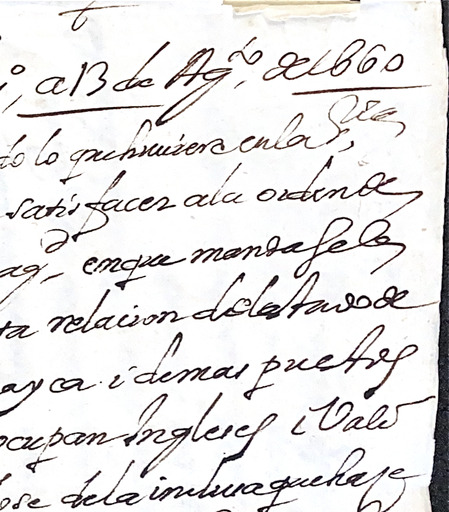 a 13 de Ag.to de 1660
do lo que huuiere en la S.ria
satisfacer a la orden de
mag.d en que manda se le
ta relacion del estado de
ayca i demas puestos
ocupan Ingleses i Vale
dela inclusa que haze